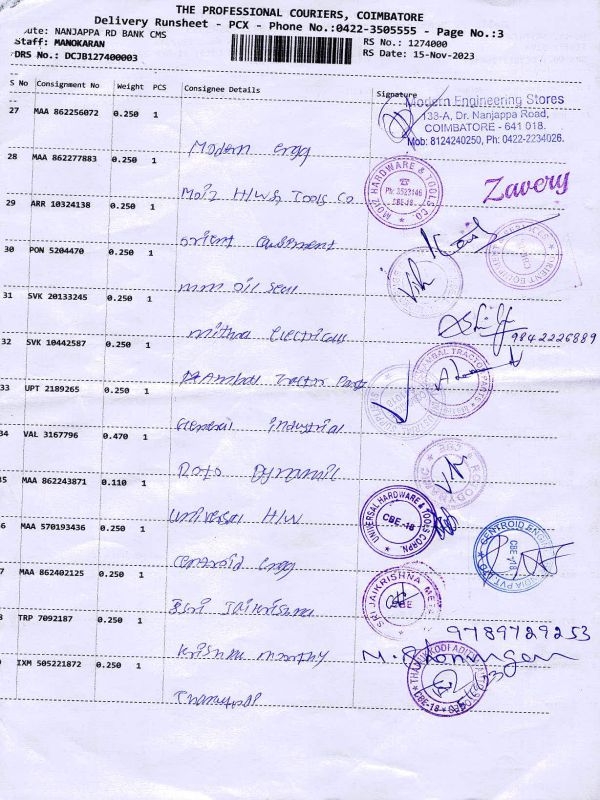 THE PROFESSIONAL COURIERS, COIMBATORE
Delivery Runsheet - PCX - Phone No.:0422-3505555 - Page No.:3
oute: NANJAPPA RD BANK CMS
RS No.: 1274000
Staff: MANOKARAN
RS Date: 15-Nov-2023
DRS No.: DCJB127400003
S No Consignment No Weight PCS Consignee Details Signature
27 MAA 862256072 0.250 1 Modern engg
Modern Engineering Stores
133-A, Dr. Nanjappa Road,
COIMBATORE - 641 018.
Mob: 8124240250, Ph: 0422-2234026.
28 MAA 862277883 0.250 1 Moiz H/W & Tools Co
MOIZ HARDWARE & TOOLS CO.
CBE-18
Zavery
29 ARR 10324138 0.250 1 orient equipment
30 PON 5204470 0.250 1 mm oil seal
31 SVK 20133245 0.250 1 mithra electricals
9842226889
32 SVK 10442587 0.250 1 Ambal Tractor Parts
33 UPT 2189265 0.250 1 General industrial
34 VAL 3167796 0.470 1 Roto Dynamic
35 MAA 862243871 0.110 1 universal H/W
UNIVERSAL HARDWARE & TOOLS CORPN.
CBE-18
6 MAA 570193436 0.250 1 Centroid engg
CENTROID ENGG
INDIA PVT. LTD
CBE-18
7 MAA 862402125 0.250 1 Sri Jaikrishna
SRI JAIKRISHNA ME
CBE
8 TRP 7092187 0.250 1 Krishna moorthy
9789729253
9 IXM 505221872 0.250 1
CBE-18